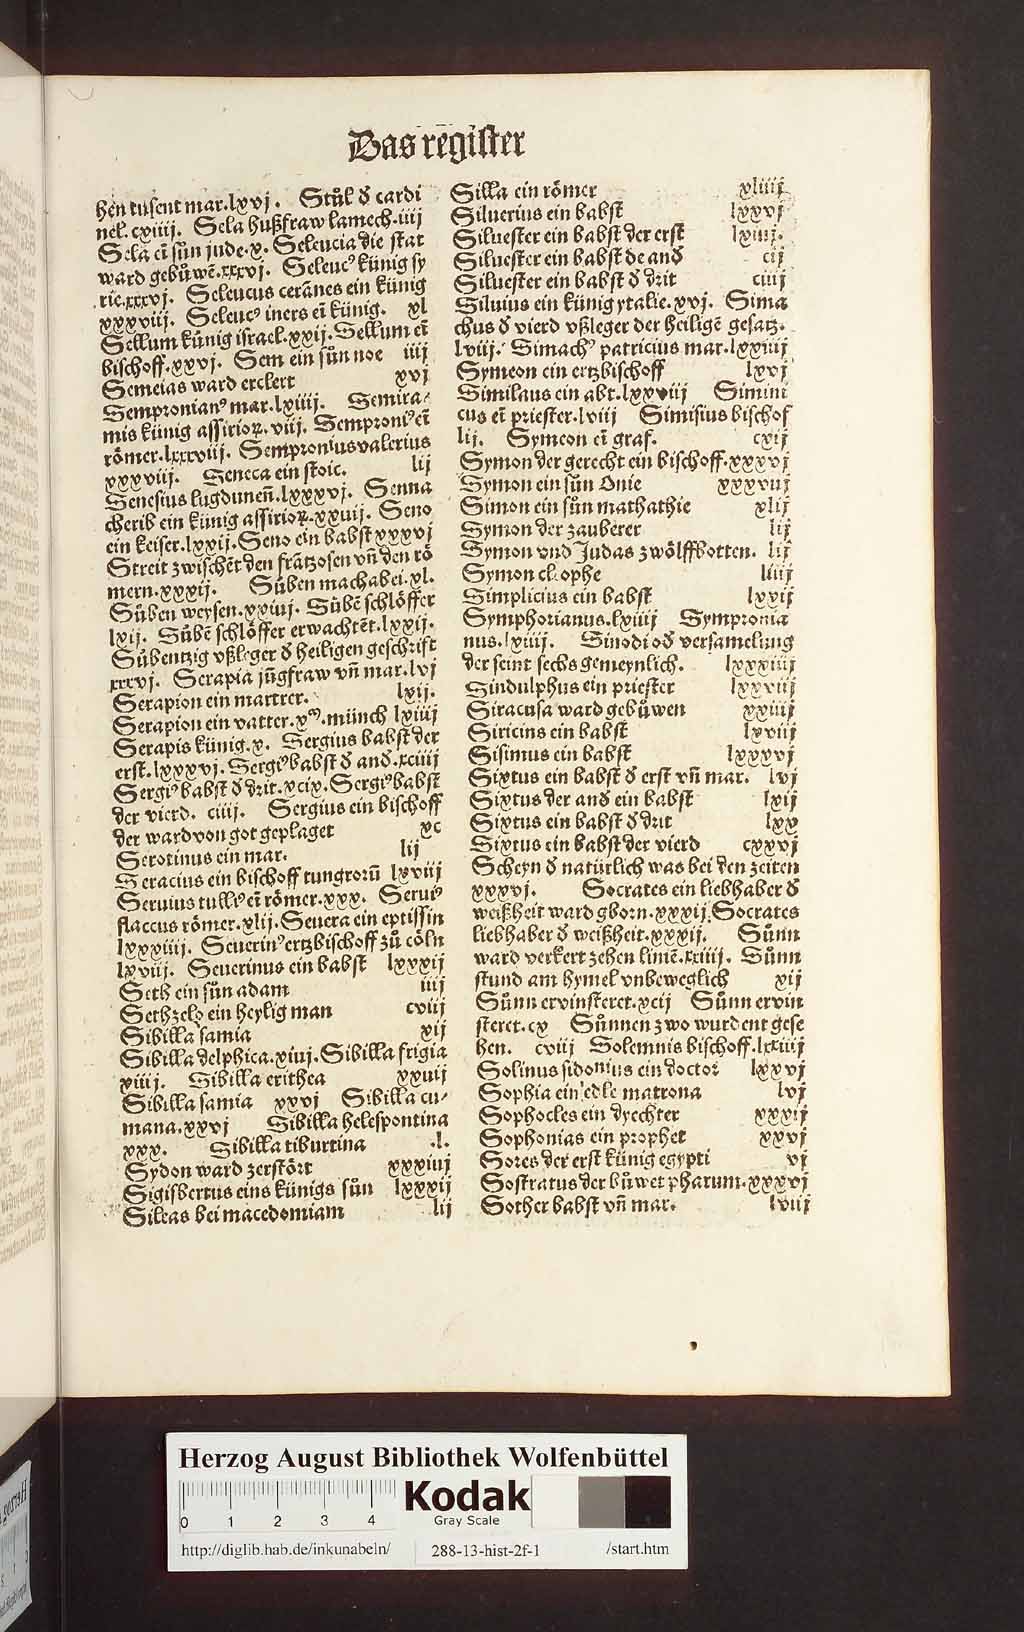 Das regiſter
hen tuſent mar.lxvj. Stůl d̕ cardi
nel. cxiiij. Sela hußfraw lamech.iiij
Sela eī ſůn jude.x. Seleucia die ſtat
ward gebůwē.xxxvj. Seleucꝰ künig ſy
rie.xxxvj. Seleucus cerānes ein künig
xxxviij. Seleucꝰ iners eī künig. xl
Sellum künig iſrael.xxij. Sellum eī
biſchoff.xxvj. Sem ein ſůn noe iiij
Semeias ward erclert xvj
Sempronianꝰ mar.lxiiij. Semira⸗
mis künig aſſirioꝝ.viij. Semproniꝰ eī
römer.lxxxviij. Sempronius valerius
xxxviij. Seneca ein ſtoic. lij
Seneſius lugdunen̄.lxxxvj. Senna
cherib ein künig aſſirioꝝ.xxvij. Seno
ein keiſer.lxxij. Seno ein babſt xxxvj
Streit zwiſchēt den frātzoſen vn̄ den rö
mern.xxxij. Süben machabei.xl.
Süben weyſen.xxiiij. Sübē ſchlöffer
lxij. Sübē ſchlöffer erwachtēt.lxxij.
Sübentzig vßleger d̕ heiligen geſchrift
xxxvj. Serapia jūgfraw vn̄ mar.lvj
Serapion ein martrer. lxij.
Serapion ein vatter.xᵐ.münch lxiiij
Serapis künig.x. Sergius babſt der
erſt.lxxxvj. Sergiꝰ babſt d̕ and̕.xciiij
Sergiꝰ babſt d̕ drit.xcix. Sergiꝰ babſt
der vierd. ciiij. Sergius ein biſchoff
der ward von got geplaget xc
Serotinus ein mar. lij
Seracius ein biſchoff tungrorū lxviij
Seruius tulliꝰ eī römer.xxx. Seruiꝰ
flaccus römer.xlij. Seuera ein eptiſſin
lxxxiiij. Seuerinꝰ ertzbiſchoff zů cöln
lxviij. Seuerinus ein babſt lxxxij
Seth ein ſůn adam iiij
Sethzelo ein heylig man cviij
Sibilla ſamia xij
Sibilla delphica.xiiij. Sibilla frigia
xiiij. Sibilla erithea xxvij
Sibilla ſamia xxvj Sibilla cu⸗
mana.xxvj Sibilla heleſpontina
xxx. Sibilla tiburtina .l.
Sydon ward zerſtört xxxiiij
Sigiſbertus eins künigs ſůn lxxxij
Sileas bei macedomiam lij
Silla ein römer xliiij
Siluerius ein babſt lxxvj
Silueſter ein babſt der erſt lxiiij.
Silueſter ein babſt de and̕ cij
Silueſter ein babſt d̕ drit ciiij
Siluius ein künig ytalie.xvj. Sima
chus d̕ vierd vßleger der heiligē geſatz.
lviij. Simachꝰ patricius mar.lxxiiij
Symeon ein ertzbiſchoff lxvj
Similaus ein abt.lxxviij Simini
cus eī prieſter.lviij Simiſius biſchof
lij. Symeon eī graf. cxij
Symon der gerecht ein biſchoff.xxxvj
Symon ein ſůn Onie xxxviij
Simon ein ſůn mathathie xlij
Symon der zauberer lij
Symon vnd Judas zwölffbotten. lij
Symon cleophe liiij
Simplicius ein babſt lxxij
Symphorianus.lxiiij Sympronia
nus.lxiiij. Sinodi od̕ verſamelung
der ſeint ſechs gemeynlich. lxxxiiij
Sindulphus ein prieſter lxxviij
Siracuſa ward gebůwen xxiiij
Siricius ein babſt lxviij
Siſimus ein babſt lxxxvj
Sixtus ein babſt d̕ erſt vn̄ mar. lvj
Sixtus der and̕ ein babſt lxij
Sixtus ein babſt d̕ drit lxx
Sixtus ein babſt der vierd cxxvj
Scheyn d̕ natürlich was bei den zeiten
xxxvj. Socrates ein liebhaber d̕
weißheit ward gborn.xxxij. Socrates
liebhaber d̕ weißheit.xxxij. Sůnn
ward verkert zehen linиē.xxiiij. Sůnn
ſtund am hymel vnbeweglich xij
Sůnn ervinſteret.xcij Sůnn ervin
ſteret.cx Sůnnen zwo wurdent geſe
hen. cviij Solemnis biſchoff.lxxiiij
Solinus ſidonius ein doctor lxxvj
Sophia ein edle matrona lvj
Sophocles ein dyechter xxxij
Sophonias ein prophet xxvj
Sores der erſt künig egypti vj
Soſtratus der bůwet pharum.xxxvj
Sother babſt vn̄ mar. lviij
Herzog August Bibliothek Wolfenbüttel
0 1 2 3 4
Kodak
Gray Scale
http://diglib.hab.de/inkunabeln/ 288-13-hist-2f-1 /start.htm